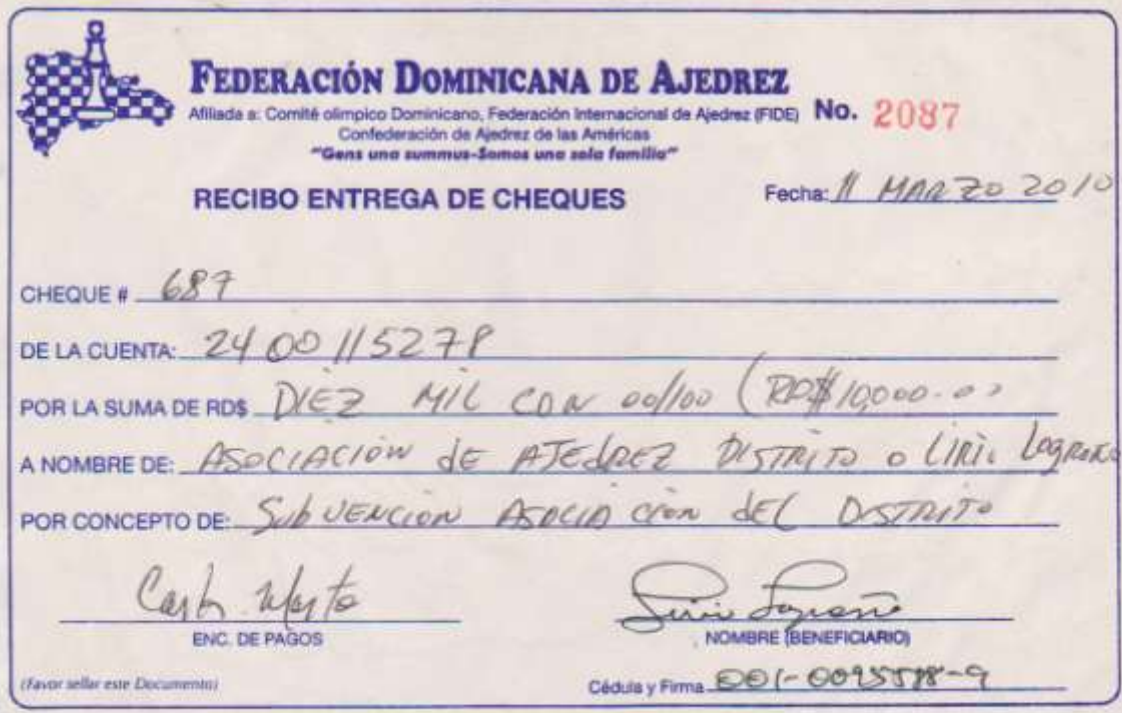 FEDERACIÓN DOMINICANA DE AJEDREZ
Afiliada a: Comité olimpico Dominicano, Federación Internacional de Ajedrez (FIDE) No. 2087
Confederación de Ajedrez de las Américas
"Gens una summus-Somos una sola familia"
RECIBO ENTREGA DE CHEQUES
Fecha: 11 MARZO 2010
CHEQUE # 687
DE LA CUENTA: 2400115278
POR LA SUMA DE RD$ DIEZ MIL CON 00/100 (RD$10,000.00
A NOMBRE DE: ASOCIACIÓN dE AJEdREZ DISTRITO o LIRIO Logroño
POR CONCEPTO DE: SubVENCION ASOCIACION dEL DISTRITO
ENC. DE PAGOS
NOMBRE (BENEFICIARIO)
(Favor sellar este Documento)
Cédula y Firma 001-